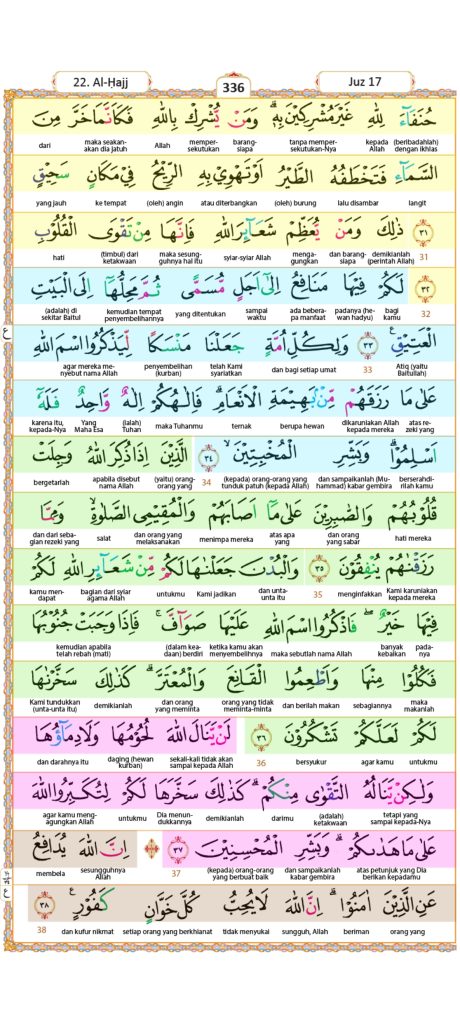 22. Al-Ḥajj
336
Juz 17
حُنَفَاۤءَ لِلّٰهِ غَيْرَ مُشْرِكِيْنَ بِهٖۗ وَمَنْ يُّشْرِكْ بِاللّٰهِ فَكَاَنَّمَا خَرَّ مِنَ
(beribadahlah) dengan ikhlas kepada Allah tanpa memper-sekutukan-Nya barang-siapa memper-sekutukan Allah maka seakan-akan dia jatuh dari
السَّمَاۤءِ فَتَخْطَفُهُ الطَّيْرُ اَوْ تَهْوِيْ بِهِ الرِّيْحُ فِيْ مَكَانٍ سَحِيْقٍ
langit lalu disambar (oleh) burung atau diterbangkan (oleh) angin ke tempat yang jauh
٣١ ذٰلِكَ وَمَنْ يُّعَظِّمْ شَعَاۤىِٕرَ اللّٰهِ فَاِنَّهَا مِنْ تَقْوَى الْقُلُوْبِ
31 demikianlah (perintah Allah) dan barang-siapa menga-gungkan syiar-syiar Allah maka sesung-guhnya hal itu (timbul) dari ketakwaan hati
٣٢ لَكُمْ فِيْهَا مَنَافِعُ اِلٰٓى اَجَلٍ مُّسَمًّى ثُمَّ مَحِلُّهَآ اِلَى الْبَيْتِ
32 bagi kamu padanya (he-wan hadyu) ada bebera-pa manfaat sampai waktu yang ditentukan kemudian tempat penyembelihannya (adalah) di sekitar Baitul
الْعَتِيْقِ ٣٣ وَلِكُلِّ اُمَّةٍ جَعَلْنَا مَنْسَكًا لِّيَذْكُرُوا اسْمَ اللّٰهِ
Atiq (yaitu Baitullah) 33 dan bagi setiap umat telah Kami syariatkan penyembelihan (kurban) agar mereka me-nyebut nama Allah
عَلٰى مَا رَزَقَهُمْ مِّنْۢ بَهِيْمَةِ الْاَنْعَامِۗ فَاِلٰهُكُمْ اِلٰهٌ وَّاحِدٌ فَلَهٗٓ
atas re-zeki yang dikaruniakan Allah kepada mereka berupa hewan ternak maka Tuhanmu (ialah) Tuhan Yang Maha Esa karena itu, kepada-Nya
اَسْلِمُوْاۗ وَبَشِّرِ الْمُخْبِتِيْنَ ٣٤ الَّذِيْنَ اِذَا ذُكِرَ اللّٰهُ وَجِلَتْ
berserahdi-rilah kamu dan sampaikanlah (Mu-hammad) kabar gembira (kepada) orang-orang yang tunduk patuh (kepada Allah) 34 (yaitu) orang-orang yang apabila disebut nama Allah bergetarlah
قُلُوْبُهُمْ وَالصّٰبِرِيْنَ عَلٰى مَآ اَصَابَهُمْ وَالْمُقِيْمِى الصَّلٰوةِۙ وَمِمَّا
hati mereka dan orang yang sabar atas apa yang menimpa mereka dan orang yang melaksanakan salat dan dari seba-gian rezeki yang
رَزَقْنٰهُمْ يُنْفِقُوْنَ ٣٥ وَالْبُدْنَ جَعَلْنٰهَا لَكُمْ مِّنْ شَعَاۤىِٕرِ اللّٰهِ لَكُمْ
Kami karuniakan kepada mereka menginfakkan 35 dan unta-unta itu Kami jadikan untukmu bagian dari syiar agama Allah kamu men-dapat
فِيْهَا خَيْرٌۖ فَاذْكُرُوا اسْمَ اللّٰهِ عَلَيْهَا صَوَاۤفَّۚ فَاِذَا وَجَبَتْ جُنُوْبُهَا
pada-nya banyak kebaikan maka sebutlah nama Allah ketika kamu akan menyembelihnya (dalam kea-daan) berdiri kemudian apabila telah rebah (mati)
فَكُلُوْا مِنْهَا وَاَطْعِمُوا الْقَانِعَ وَالْمُعْتَرَّۗ كَذٰلِكَ سَخَّرْنٰهَا
maka makanlah sebagiannya dan berilah makan orang yang tidak meminta-minta dan orang yang meminta demikianlah Kami tundukkan (unta-unta itu)
لَكُمْ لَعَلَّكُمْ تَشْكُرُوْنَ ٣٦ لَنْ يَّنَالَ اللّٰهَ لُحُوْمُهَا وَلَا دِمَاۤؤُهَا
untukmu agar kamu bersyukur 36 sekali-kali tidak akan sampai kepada Allah daging (hewan kurban) dan darahnya itu
وَلٰكِنْ يَّنَالُهُ التَّقْوٰى مِنْكُمْۗ كَذٰلِكَ سَخَّرَهَا لَكُمْ لِتُكَبِّرُوا اللّٰهَ
tetapi yang sampai kepada-Nya (adalah) ketakwaan darimu demikianlah Dia menun-dukkannya untukmu agar kamu meng-agungkan Allah
عَلٰى مَا هَدٰىكُمْۗ وَبَشِّرِ الْمُحْسِنِيْنَ ٣٧ اِنَّ اللّٰهَ يُدَافِعُ
atas petunjuk yang Dia berikan kepadamu dan sampaikanlah kabar gembira (kepada) orang-orang yang berbuat baik 37 sesungguhnya Allah membela
عَنِ الَّذِيْنَ اٰمَنُوْاۗ اِنَّ اللّٰهَ لَا يُحِبُّ كُلَّ خَوَّانٍ كَفُوْرٍ ٣٨
orang yang beriman sungguh, Allah tidak menyukai setiap orang yang berkhianat dan kufur nikmat 38